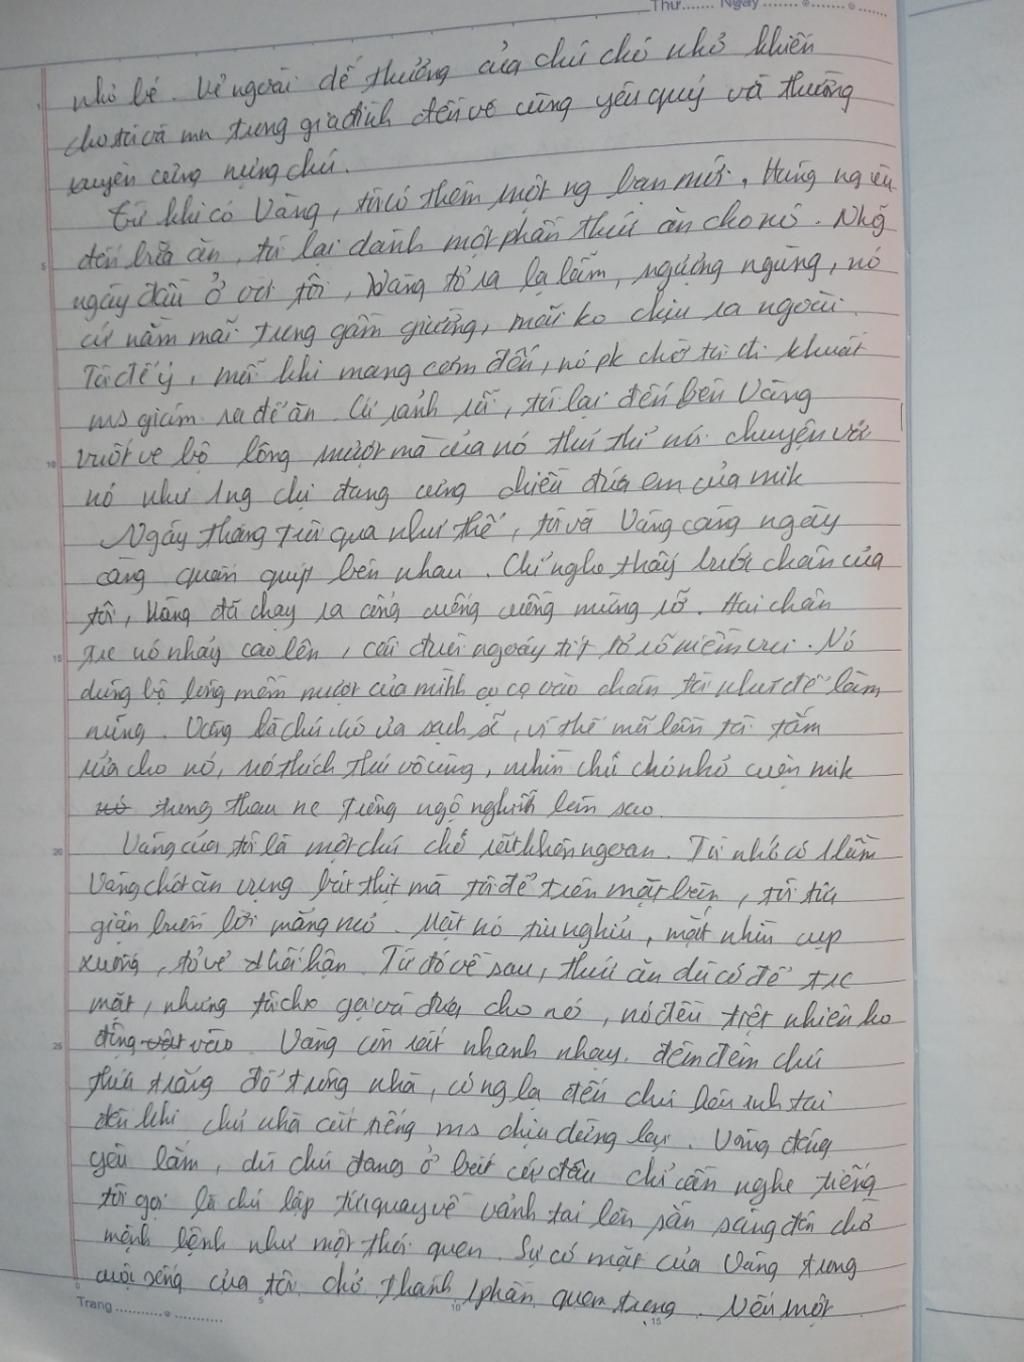 Thứ....... Ngày.......
nhỏ bé. Vẻ ngoài dễ thương của chú chó nhỏ khiến
cho tôi và mn trong gia đình đều vô cùng yêu quý và thường
xuyên cưng nựng chú.
Từ khi có Vàng, tôi có thêm một ng bạn mới. Hàng ngày
đến bữa ăn, tôi lại dành một phần thức ăn cho nó. Nhg
ngày đầu ở với tôi, Vàng tỏ ra lạ lẫm, ngượng ngùng, nó
cứ nằm mãi trong gầm giường, mãi ko chịu ra ngoài.
Tôi để ý, mỗi khi mang cơm đến, nó pk chờ tôi đi khuất
ms giám ra để ăn. Cứ rảnh rỗi, tôi lại đến bên Vàng
vuốt ve bộ lông mượt mà của nó thủ thỉ nói chuyện với
nó như 1ng chị đang cưng chiều đứa em của mik
Ngày tháng trôi qua như thế, tôi và Vàng càng ngày
càng quấn quýt bên nhau. Chỉ nghe thấy bước chân của
tôi, Vàng đã chạy ra cổng cuống cuồng mừng rỡ. Hai chân
trc nó nhảy cao lên, cái đuôi ngoáy tít tỏ rõ niềm vui. Nó
dùng bộ lông mềm mượt của mình cọ cọ vào chân tôi như để làm
nũng. Vàng là chú chó ưa sạch sẽ, vì thế mỗi lần tôi tắm
rửa cho nó, nó thích thú vô cùng, nhìn chú chó nhỏ cuộn mik
trong thau nc trông ngộ nghĩnh làm sao.
Vàng của tôi là một chú chó rất khôn ngoan. Tôi nhớ có 1 lần
Vàng chót ăn vụng bát thịt mà tôi để trên mặt bàn, tôi tức
giận buông lời mắng nó. Mặt nó tiu nghỉu, mắt nhìn cụp
xuống, tỏ vẻ hối hận. Từ đó về sau, thức ăn dù có để trc
mặt, nhưng tôi chx gọi và đưa cho nó, nó đều tiệt nhiên ko
động vào. Vàng còn rất nhanh nhạy. đêm đêm chú
thức trắng để trông nhà, có ng lạ đến chú liền vểnh tai
đến khi chủ nhà cất tiếng ms chịu dừng lại. Vàng đáng
yêu lắm, dù chú đang ở bất cứ đâu chỉ cần nghe tiếng
tôi gọi là chú lập tức quay về vảnh tai lên sẵn sàng đón chờ
mệnh lệnh như một thói quen. Sự có mặt của Vàng trong
cuộc sống của tôi trở thành 1 phần quan trọng. Nếu một
Trang...................